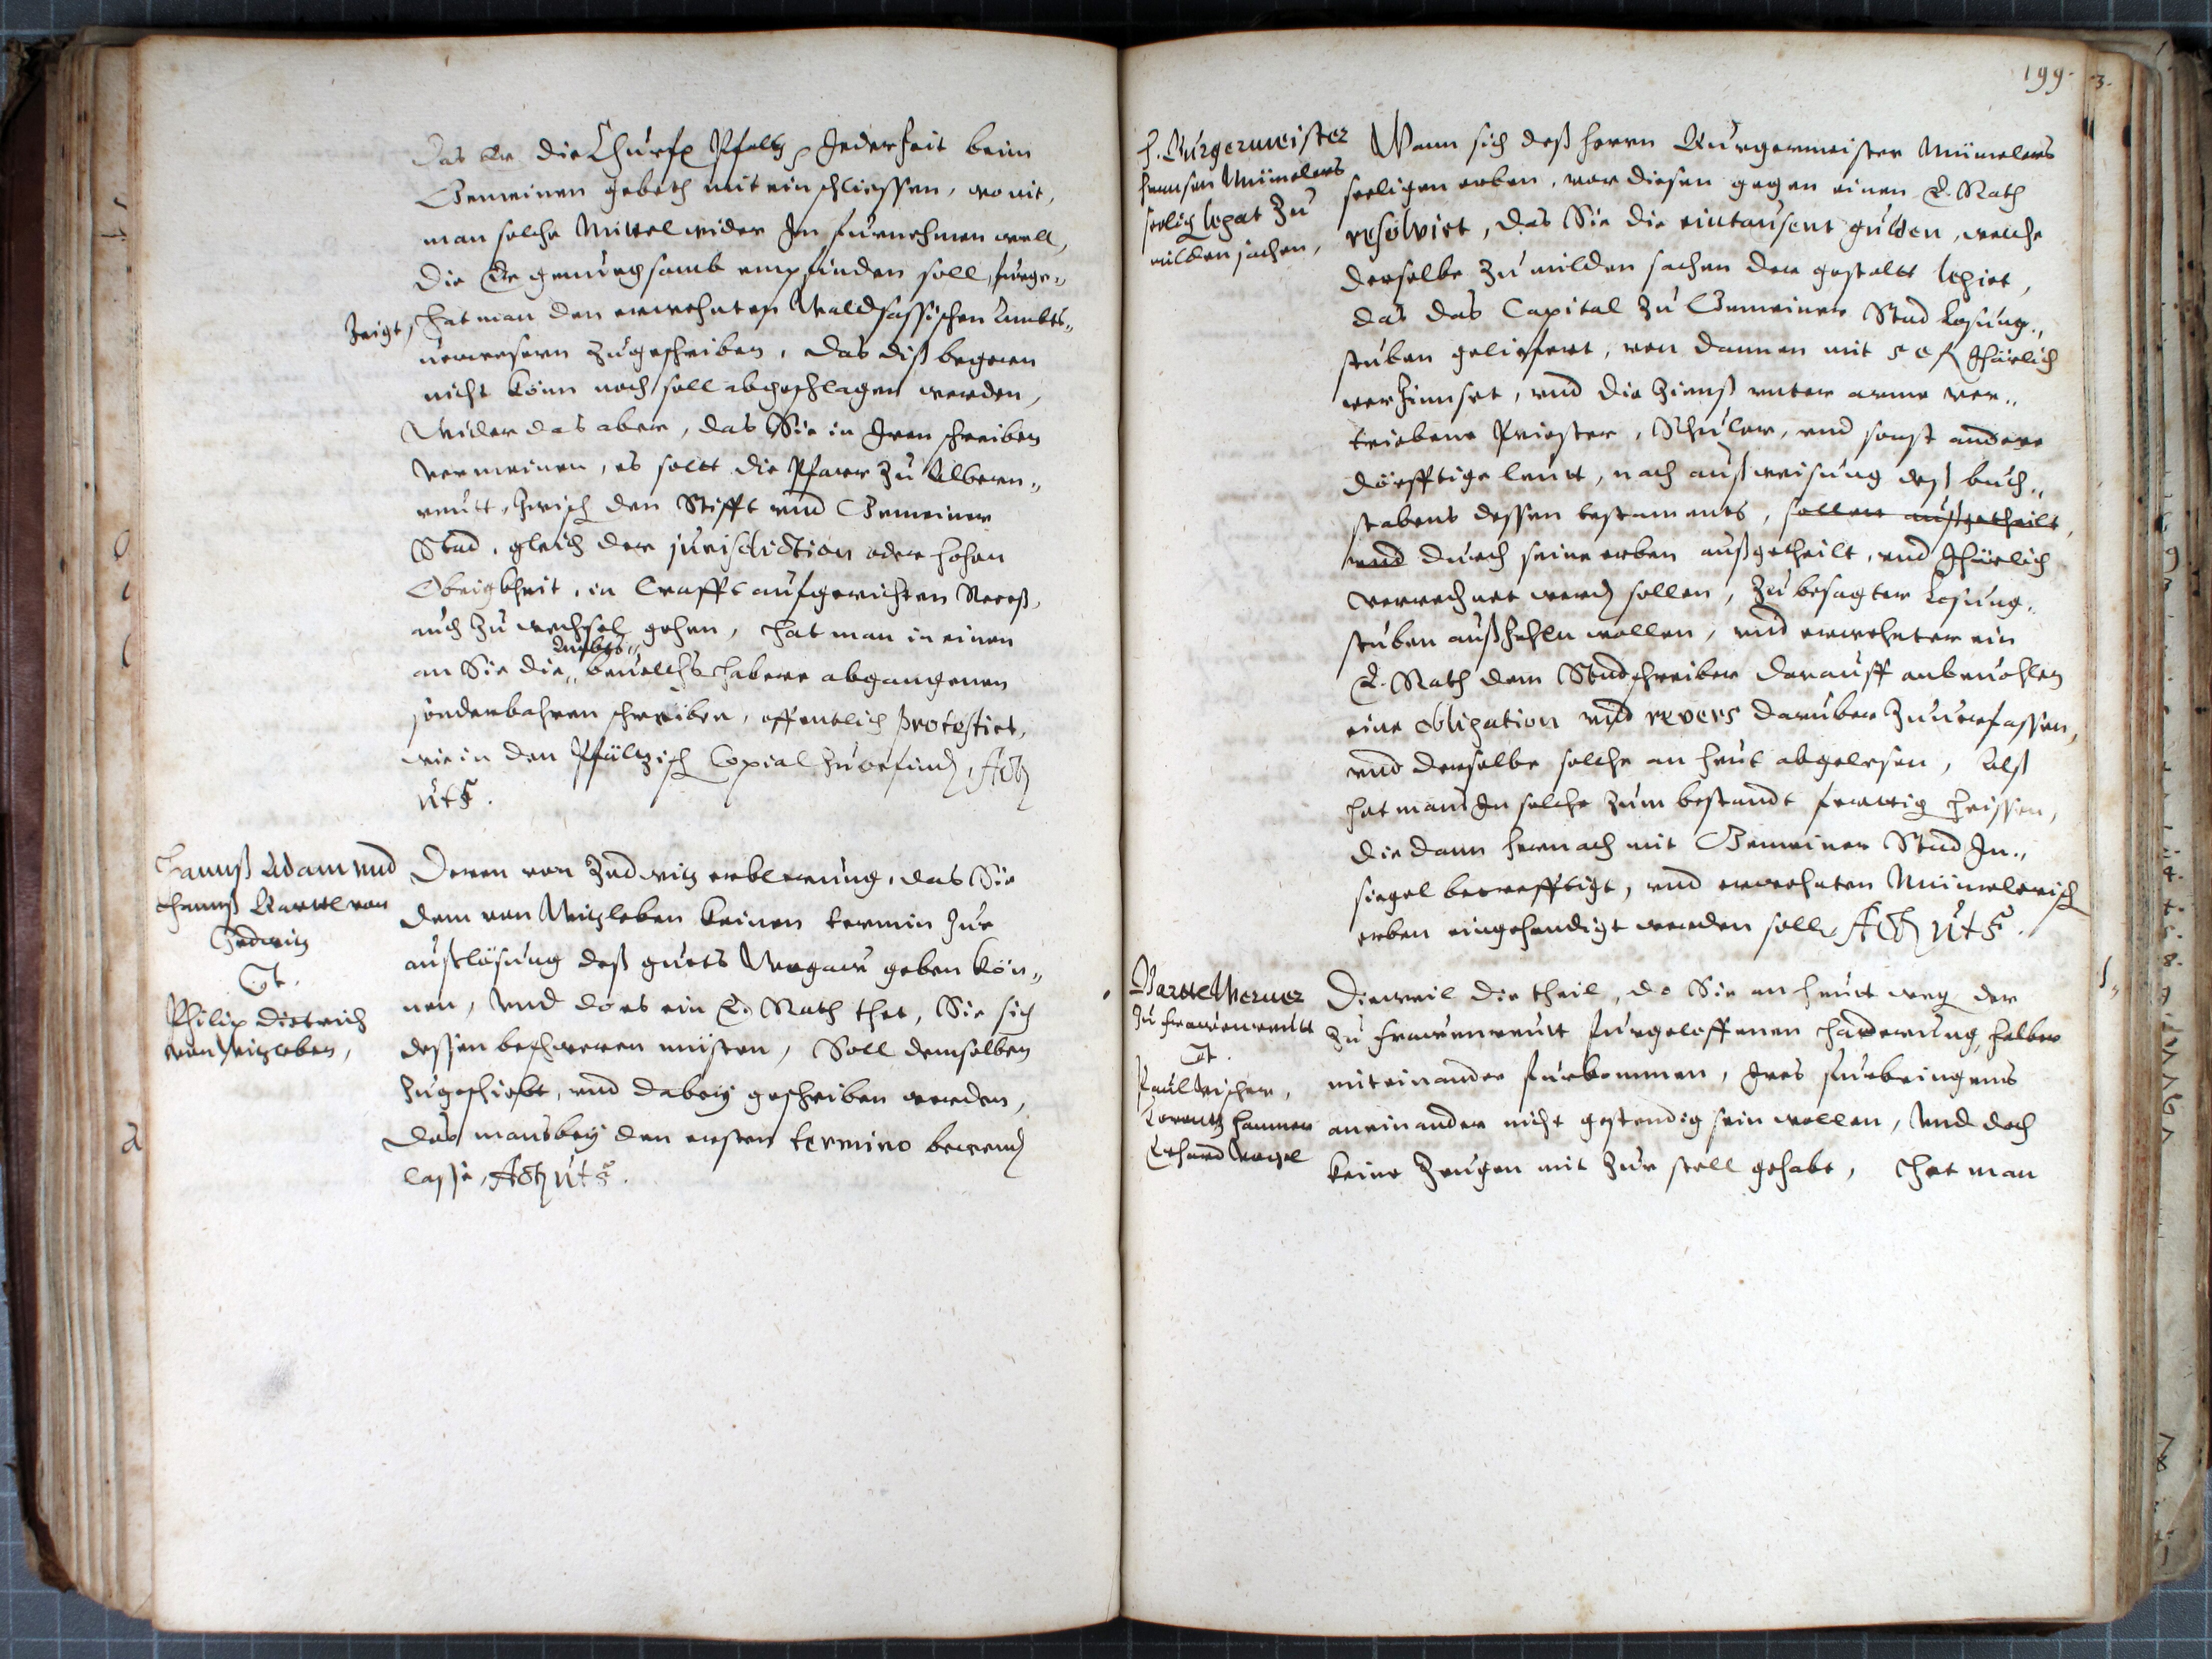 Das Er die Churf Pfaltz Jederzeit beim
Gemeinen gebeth mit ein schliessen, wo nit,
man solche Mittel wider Jn furnehmen woll,
die Er genungsamb empfinden soll, furge„
Zeigt, hat man den erwehnten Waldsassischen Ambts„
uerwesern zugeschriben, das diß begeren
nicht könn noch soll abgeschlagen werden,
Wider das aber, das Sie in Iren schreiben
vermeinen, es sollt die Pfarr zu Albern„
reutt, zwisch den Stifft und Gemeiner
Stad, gleich der jurisdiction oder hohen
Obrigkheit, in Crafft aufgerichten Receß,
auch zu wechsel gehen, hat man in einen
Ambts„
an Sie die„ beuelchs habere abgangenen
sonderbahren schreiben, offentlich protestirt,
wie in den Pfältzisch Copial zu befinden, Act
ut s.
Hannß Adam und
Hannß Barttl von
Zedwitz
Ct.
Philip Dietrich
von Witzleben,
Deren von Zedwitz erklerung, das Sie
dem von Witzleben keinen termin zur
außlösung deß guets Wogaw geben kön„
nen, Und do es ein E. Rath thet, Sie sich
dessen beschweren müsten, Soll demselben
zugeschickt, und dabey geschriben werden,
das mans bey den ersten termino bewenden
lasse, Act ut s.
199.
H. Burgermeister
Mümelers
seelig legat zu
milden sachen,
Wann sich deß herrn Burgermeister Mümelers
seeligen erben, vor diesen gegen einen E. Rath
resolvirt, das Sie die eintausent gulden, welche
derselbe zu milden sachen der gestallt legirt,
das das Capital zu Gemeiner Stad Losung„
stuben geliefert, von dannen mit 50 fl Jhärlich
verzinnset, und die Zienß unter arme ver„
triebene Priester, Schuler, und sonst andere
dörfftige leutt, nach außweisung deß buch„
stabens dessen testaments, sollen außgetheilt,
und durch seine erben außgetheilt, und Jhärlich
verrechnet werden sollen, zu besagter Losung„
stuben außzehln wollen, und erwehnter ein
E. Rath dem Stadschreiber darauff anbeuohlen
eine obligation und revers daruber zuuerfassen,
und derselbe solche an heut abgelesen, Alß
hat mans Jn solche zum bestandt fertig heissen,
die dann hernach mit Gemeiner Stad In„
siegel becrefftigt, und erwehnten Mümelerisch
erben eingehendigt werden soll, Act ut s.
Barttl Werner
zu Frawenreutt
Ct.
Paul Fischer,
Lorentz Hammer
Erhard Vogel
Dieweil die theil, do Sie an heutt weg der
zu Frawenreutt furgeloffenen haderung halber
miteinander furkommen, Ires furbringens
aneinander nicht gestendig sein wollen, Und doch
keine Zeugen mit zur stell gehabt, Hat man